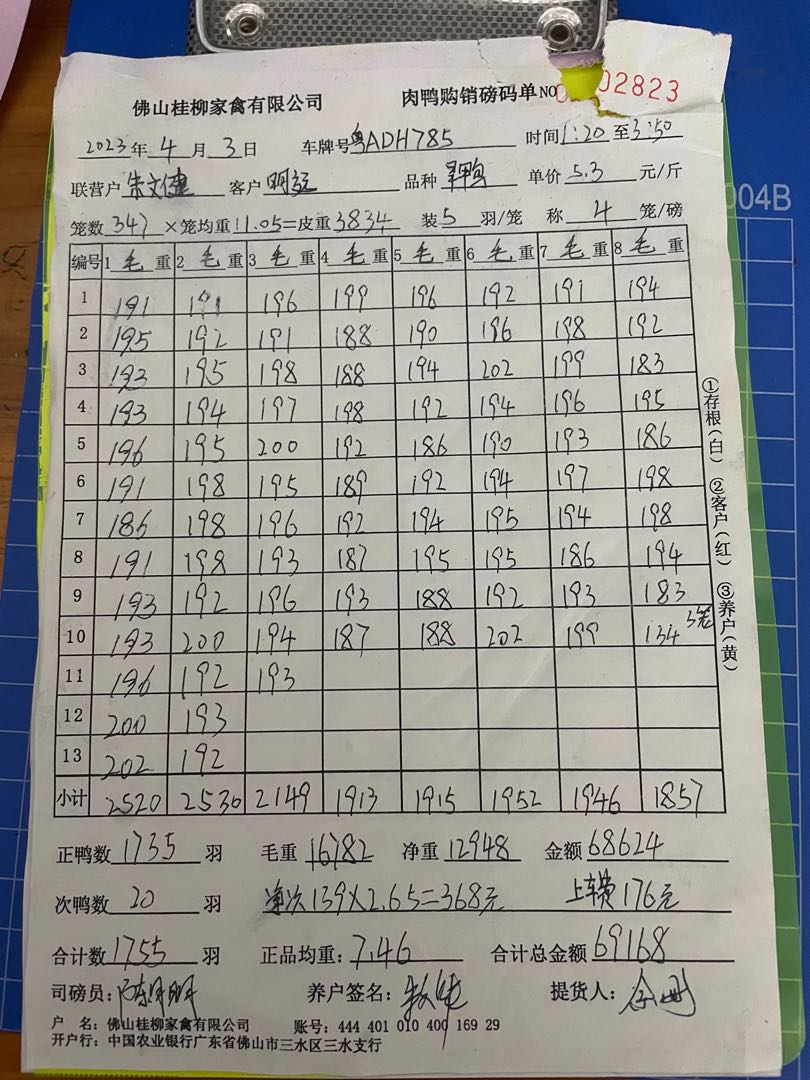 佛山桂柳家禽有限公司 肉鸭购销磅码单 NO 02823
2023年 4 月 3 日 车牌号 粤ADH785 时间 1:20 至 3:50
联营户 朱文健 客户 明 品种 鸭 单价 5.3 元/斤
笼数 347 ×笼均重 11.05=皮重 3834 装 5 羽/笼 称 4 笼/磅
编号 1 毛 重 2 毛 重 3 毛 重 4 毛 重 5 毛 重 6 毛 重 7 毛 重 8 毛 重
1 191 191 196 199 196 192 191 194
2 195 192 191 188 190 196 198 192
3 193 195 198 188 194 202 199 183
4 193 194 197 198 192 194 196 195
5 196 195 200 192 186 190 193 186
6 191 198 195 189 192 194 197 198
7 186 198 196 192 194 195 194 198
8 191 198 193 187 195 195 186 194
9 193 192 196 193 188 192 193 183
10 193 200 194 187 188 202 199 134 3笼
11 196 192 193
12 200 193
13 202 192
小计 2520 2530 2149 1913 1915 1952 1946 1857
正鸭数 1735 羽 毛重 16782 净重 12948 金额 68624
次鸭数 20 羽 次139×2.65=368元 上车费176元
合计数 1755 羽 正品均重: 7.46 合计总金额 69168
司磅员: 养户签名: 提货人:
户 名: 佛山桂柳家禽有限公司 账号: 444 401 010 400 169 29
开户行: 中国农业银行广东省佛山市三水区三水支行
①存根(白) ②客户(红) ③养户(黄)
004B